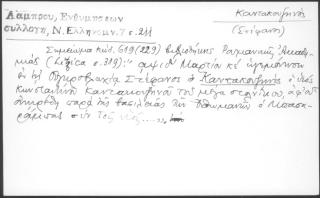 Λάμπρου, Ενθυμήσεων
συλλογή, Ν. Ελληνομν. 7 σ. 211
Καντακουζηνός
(Στέφανος)
Σημείωμα κωδ. 619 (229) βιβλιοθήκης Ρουμανικής Ακαδη
μίας (Litzica σ. 329): "αψιδ Μαρτίου κε ηγεμόνευσεν
εις Ουγγροβλαχία Στέφανος ο Καντακουζηνός ο υιός
Κωνσταντίνου Καντακουζηνού του μεγα στολνίκου, αφ' ού
επάρθη παρά της βασιλείας των Οθωμανών ο Μπασα
ράμπας συν τοις